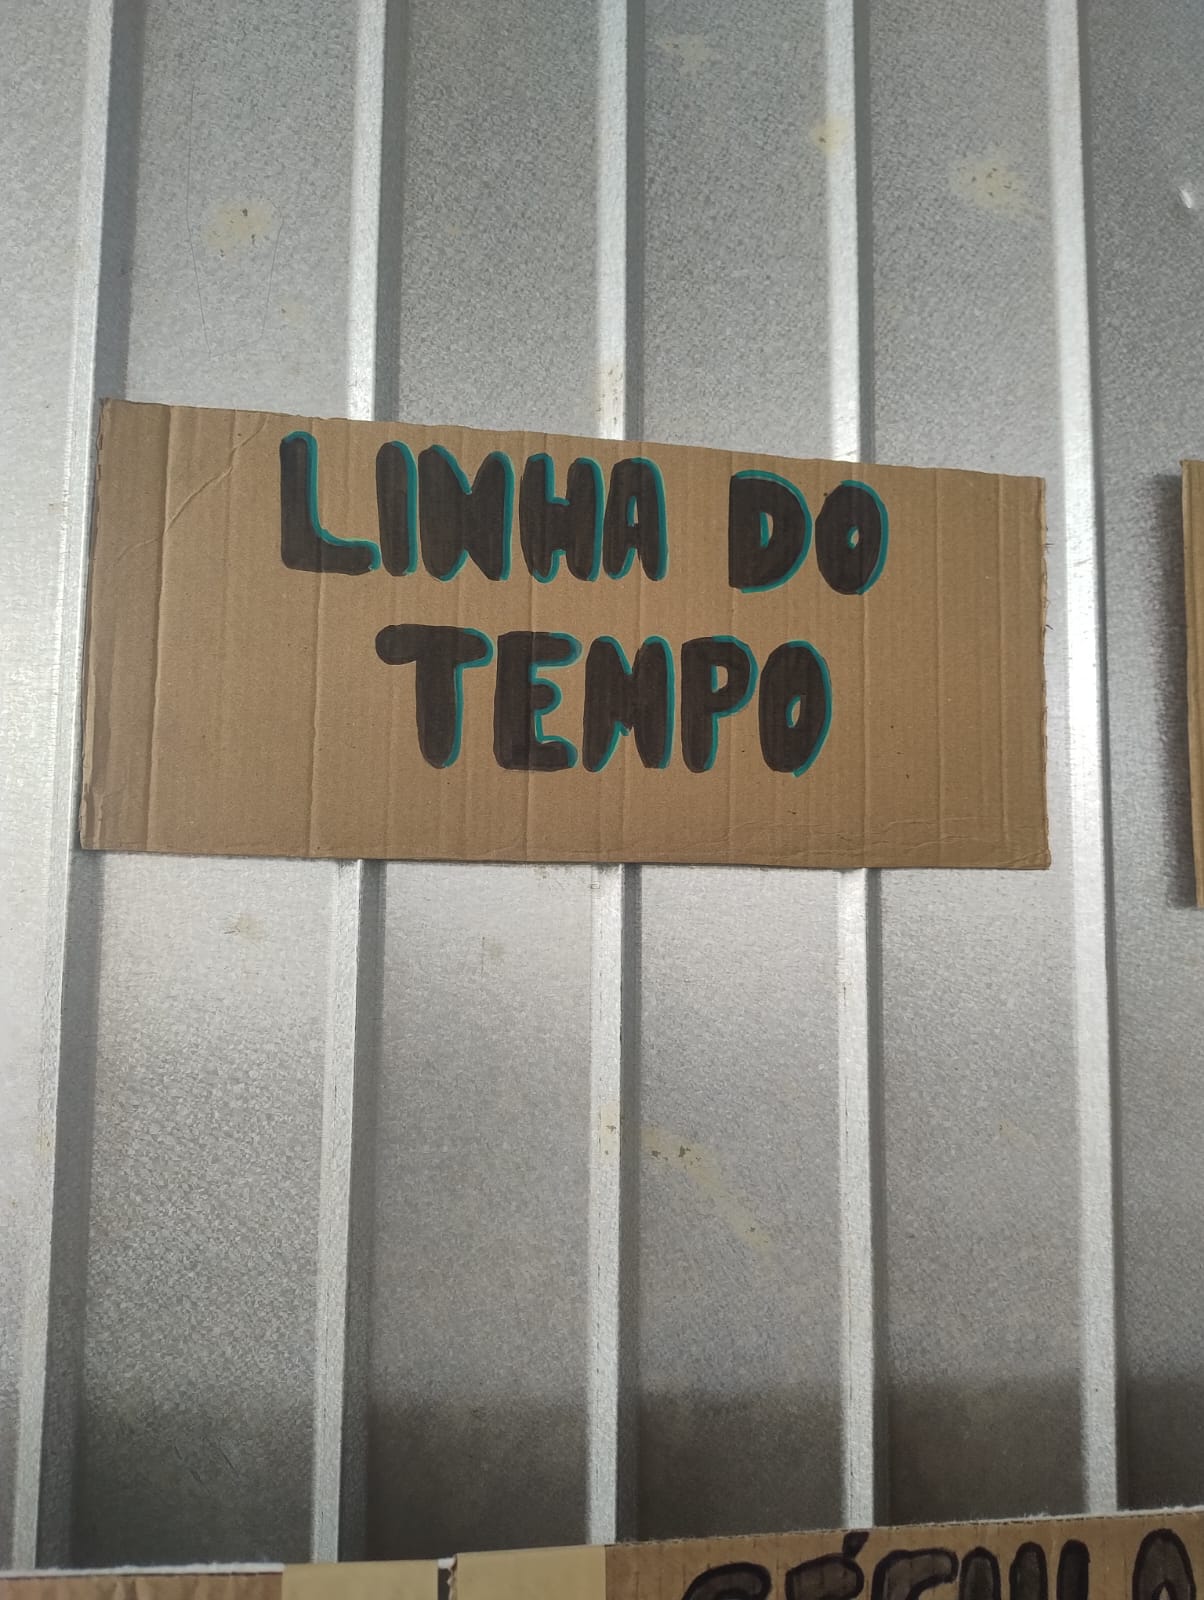 LINHA DO
TEMPO